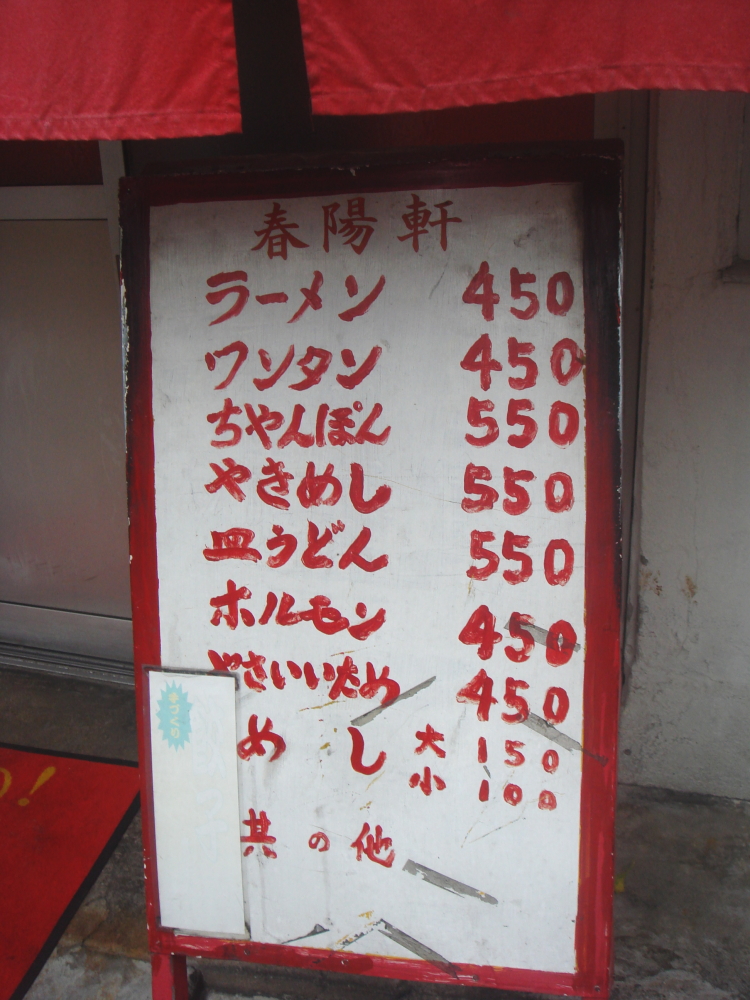 春陽軒
ラーメン 450
ワンタン 450
ちゃんぽん 550
やきめし 550
皿うどん 550
ホルモン 450
やさいいため 450
めし 大 150
小 100
其の他
手づくり
!